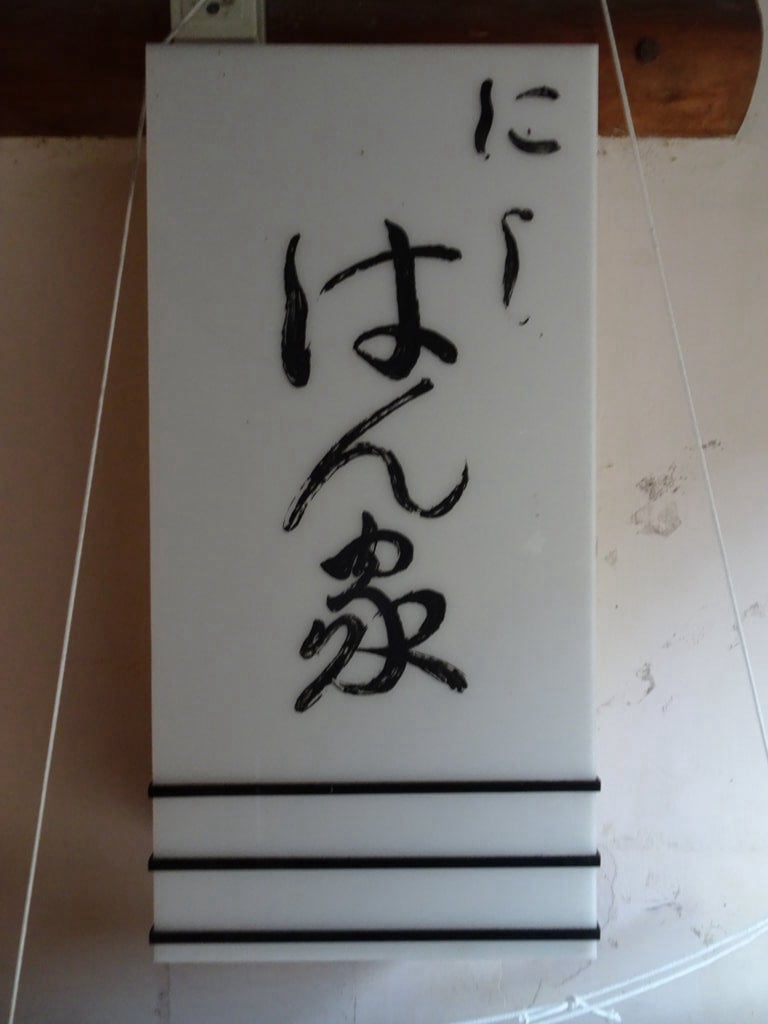 にし
はん家